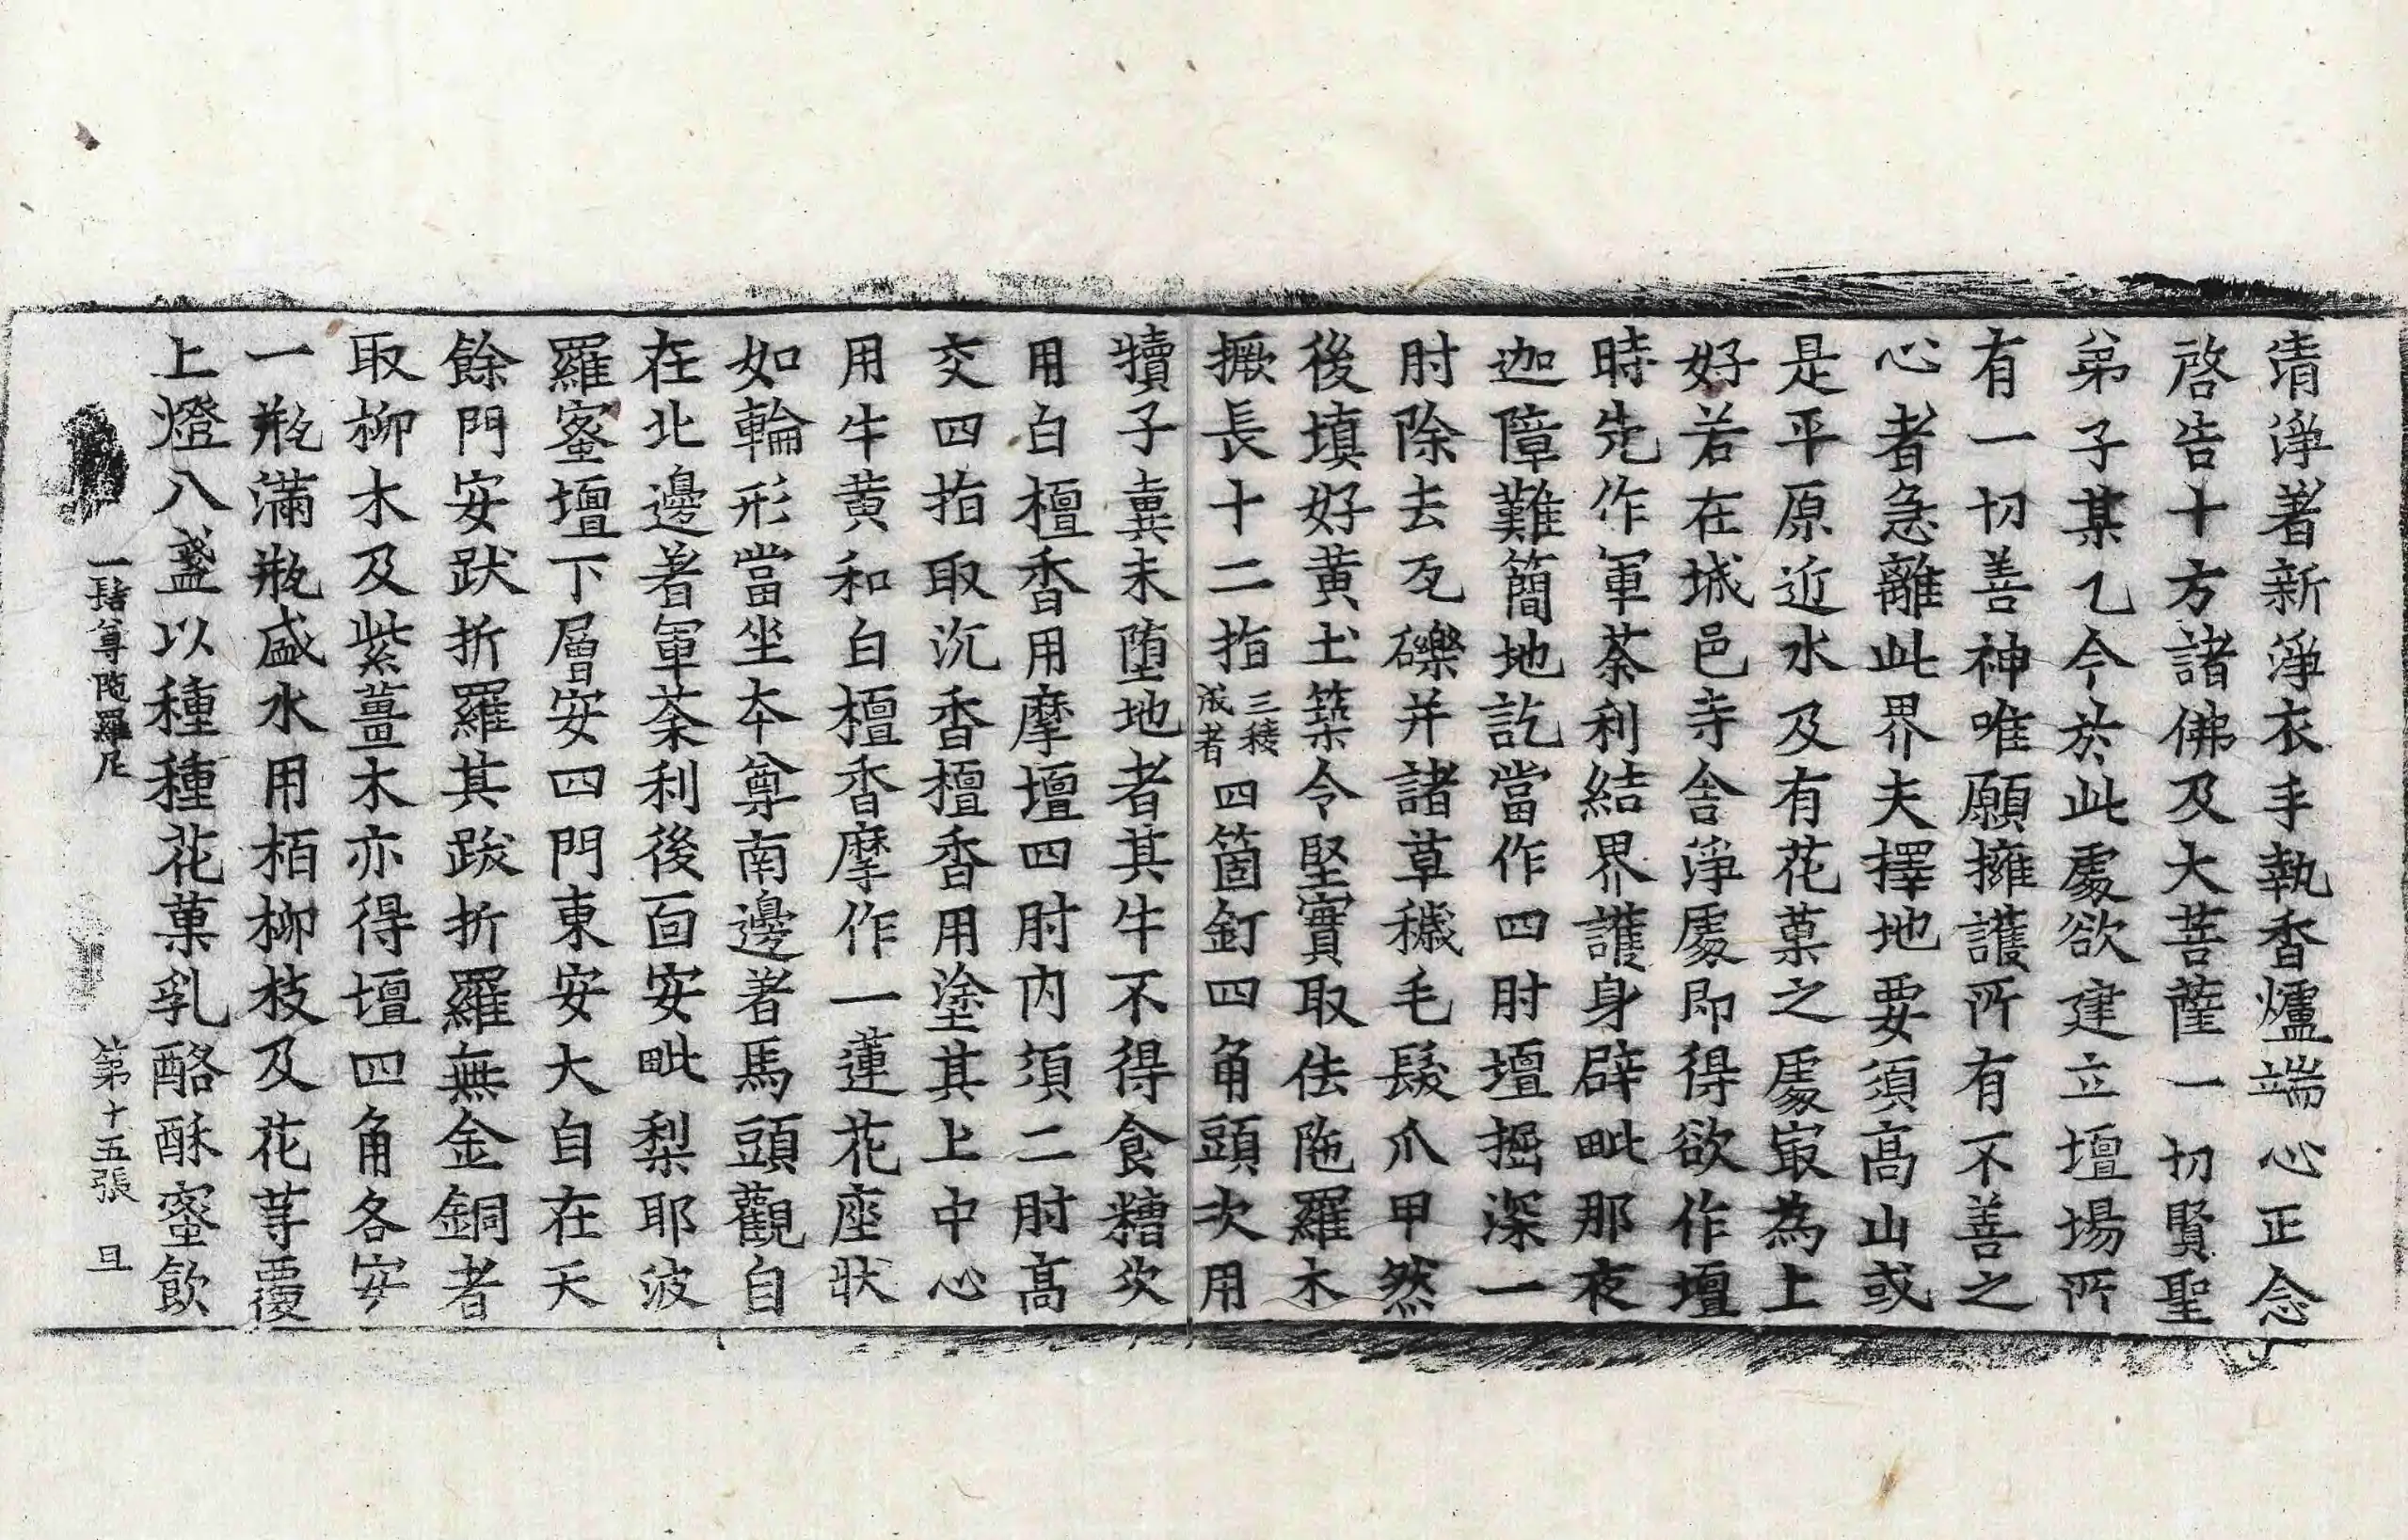 清淨著新淨衣手執香爐端心正念
啓告十方諸佛及大菩薩一切賢聖
弟子某乙今於此處欲建立壇場所
有一切善神唯願擁護所有不善之
心者急離此界夫擇地要須高山或
是平原近水及有花菓之處㝡為上
好若在城邑寺舍淨處即得欲作壇
時先作軍荼利結界護身辟毗那夜
迦障難簡地訖當作四肘壇掘深一
肘除去瓦礫并諸草穢毛髮爪甲然
後填好黄土築令堅實取佉陁羅木
撅長十二指三稜成者四箇釘四角頭次用
犢子糞未墮地者其牛不得食糟次
用白檀香用摩壇四肘内須二肘高
交四指取沉香檀香用塗其上中心
用牛黄和白檀香摩作一蓮花座狀
如輪形當坐夲尊南邊著馬頭觀自
在北邊著軍荼利後面安毗梨耶波
羅蜜壇下層安四門東安大自在天
餘門安跋折羅其跋折羅無金銅者
取柳木及紫薑木亦得壇四角各安
一瓶滿瓶盛水用栢柳枝及花䓁覆
上燈八盞以種種花菓乳酪酥蜜飲
一髻尊陁羅尼 第十五張 旦